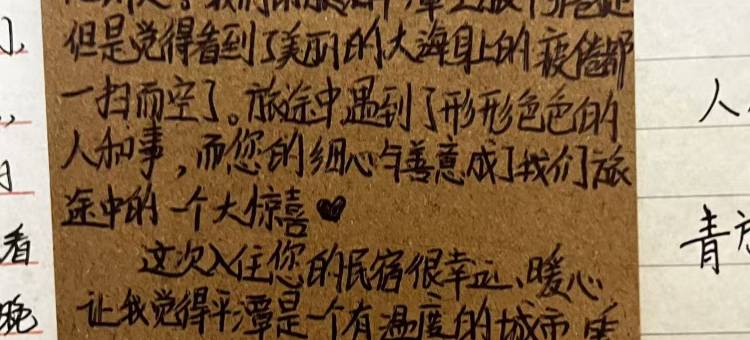 但是觉得看到了美丽的大海身上的疲倦都
一扫而空了。旅途中遇到了形形色色的
人和事，而您的细心与善意成了我们旅
途中的一个大惊喜♥
这次入住您的民宿很幸运、暖心
让我觉得平潭是一个有温度的城市
看
晚
人
青